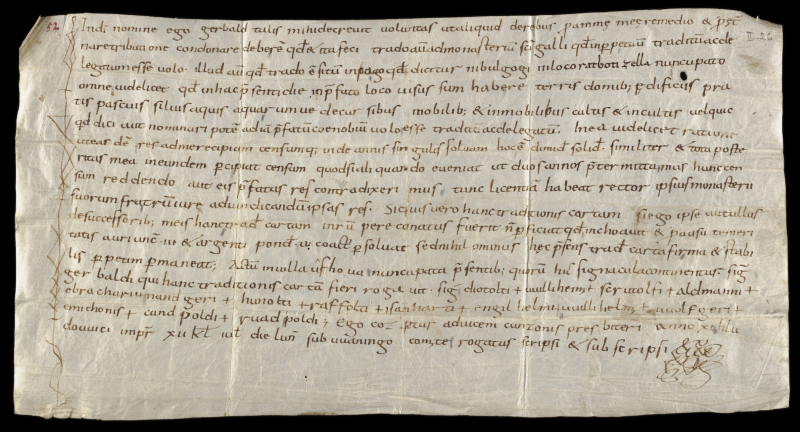 52
II. 26
Indi nomine ego gerbald talis mihi decrevit voluntas ut aliquid de rebus pro anime mee remedio &
nare tribuatione condonare deberem qđ & ita feci trado au ad monasteriu sci galli qđ in ppetuu traditu ac de
legatum esse volo. illud au qđ trado e situ in pago qđ dicitur nibulgogi in loco ratboti zella nuncupato
omne videlicet qđ in hac psenti die in pfato loco visus sum habere terris domib; edificiis pra
tis pascuis silvis aquis aquarumve decursibus mobilib; & inmobilibus cultis & incultis vel quic
qđ dici aut nominari pote ad ia pfatu coenobiu volo esse traditu ac delegatu. In ea videlicet ratione
ut eas de res ad me recipiam censumq; inde annis singulis solvam hoc e dimid solid similiter & tota poste
ritas mea in eundem pcipiat censum quod si ali quando eveniat ut duos annos ptermittamus hunc cen
sum reddendo aut eis pfatas res contradixerimus tunc licentia habeat rector ipsius monasterii
suorum fratru iure ad vindicandu ipsas res. Si quis vero hanc traditionis cartam si ego ipse aut ullus
de successorib; meis hanc trad cartam inrumpere conatus fuerit n pficiat qđ inchoavit & p ausu temeri
tatis auri unc III & argenti pond V coact psolvat sed nihilominus hec psens trad carta firma & stabi
lis ppetim pmaneat; Actu in villa nuncupata psentib; quoru hic signacula continentur. sig
gerbaldi qui hanc traditionis cartu fieri rogavit. sig diotolti + willihelmi + scrutolfi + aldmanni +
ebracharii nandgeri + hunolti + raffolti + isanharti + engilhelmi willihelmi + wolfgeri +
emichonis + cundpoldi + ruadpoldi; Ego coz ptus ad vicem cunzonis presbiteri anno
dowici impr XII kl iul die lun sub waningo comite rogatus scripsi & subscripsi